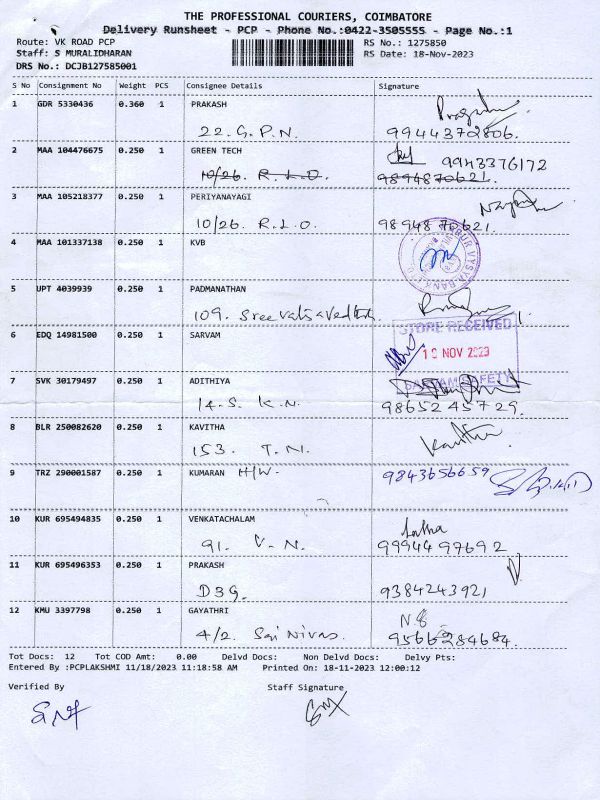 THE PROFESSIONAL COURIERS, COIMBATORE
Delivery Runsheet - PCP - Phone No.:0422-3505555 - Page No.:1
Route: VK ROAD PCP RS No.: 1275850
Staff: S MURALIDHARAN RS Date: 18-Nov-2023
DRS No.: DCJB127585001
S No Consignment No Weight PCS Consignee Details Signature
1 GDR 5330436 0.360 1 PRAKASH
22. G.P.N. 9944372806.
2 MAA 104476675 0.250 1 GREEN TECH 9943376172
10/26. R.L.O. 9894870621.
3 MAA 105218377 0.250 1 PERIYANAYAGI
10/26. R.L.O. 9894870621.
4 MAA 101337138 0.250 1 KVB
5 UPT 4039939 0.250 1 PADMANATHAN
109.
STORE RECEIVED
6 EDQ 14981500 0.250 1 SARVAM
NOV 2023
7 SVK 30179497 0.250 1 ADITHIYA
14. S. K.N. 9865245729.
8 BLR 250082620 0.250 1 KAVITHA Kavitha
153. T.N.
9 TRZ 290001587 0.250 1 KUMARAN H/W. 9843656659
10 KUR 695494835 0.250 1 VENKATACHALAM Latha
91. V.N. 9994497692
11 KUR 695496353 0.250 1 PRAKASH
D39. 9384243921
12 KMU 3397798 0.250 1 GAYATHRI
4/2. Sai Nivas.
Tot Docs: 12 Tot COD Amt: 0.00 Delvd Docs: Non Delvd Docs: Delvy Pts:
Entered By :PCPLAKSHMI 11/18/2023 11:18:58 AM Printed On: 18-11-2023 12:00:12
Verified By Staff Signature